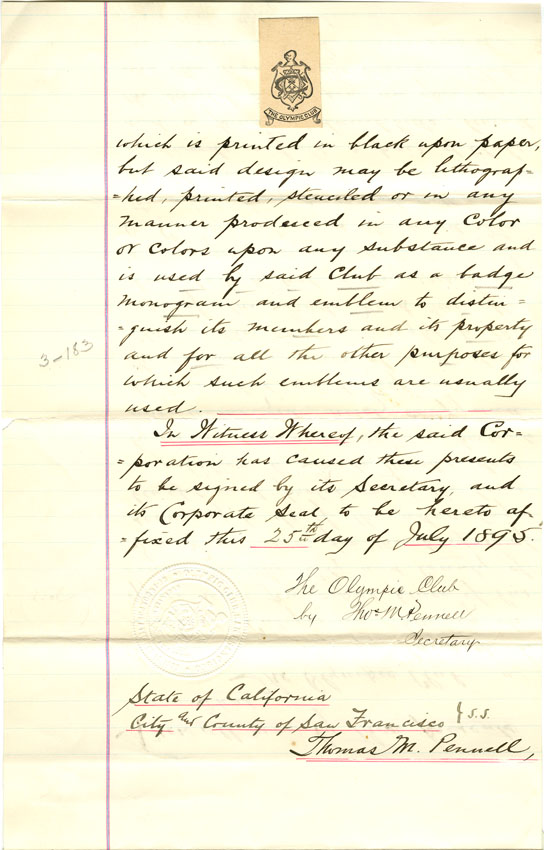 THE OLYMPIC CLUB
which is printed in black upon paper,
but said design may be lithograp=
=hed, printed, stenciled or in any
manner produced in any Color
or Colors upon any substance and
is used by said Club as a badge
monogram and emblem to distin=
=guish its members and its property
3-183
and for all the other purposes for
which such emblems are usually
used.
In Witness Whereof, the said Cor=
=poration has caused these presents
to be signed by its Secretary, and
its Corporate Seal to be hereto af
=fixed this 25th day of July 1895.
The Olympic Club
by Thos M Pennell
Secretary
State of California
City and County of San Francisco } S.S.
Thomas M. Pennell,